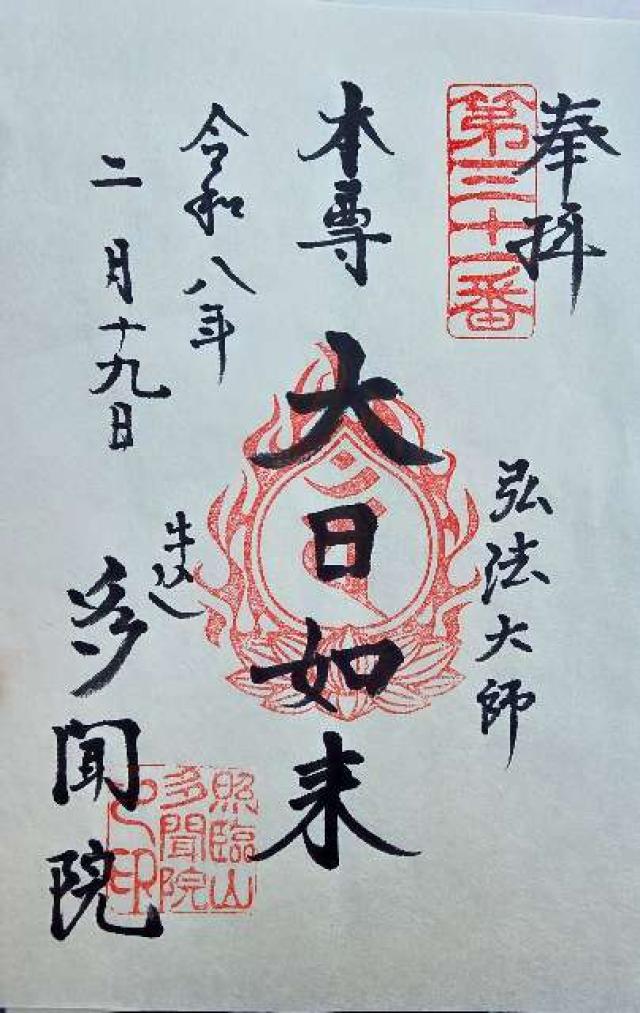 奉拝
第三十一番
弘法大師
本尊
大日如来
令和八年
二月十九日
牛込
多聞院
照臨山
多聞院
之印